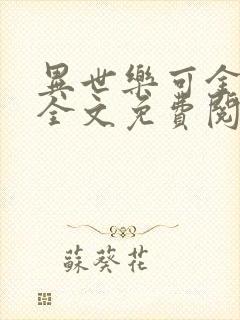 異世樂可全
全文免費閱
蘇葵花